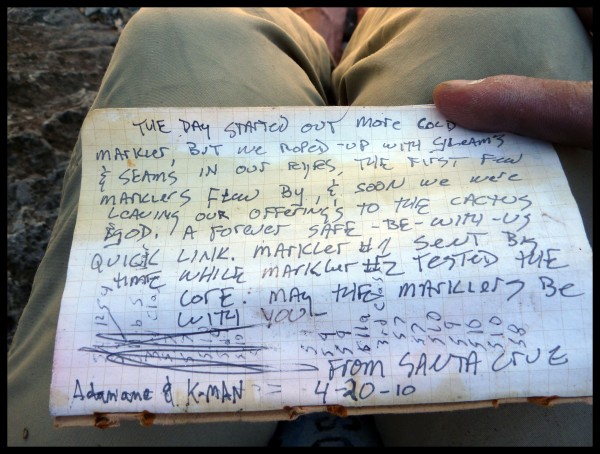 THE DAY STARTED OUT MORE COLD
MARKLER, BUT WE ROPED-UP WITH
& SEAMS IN OUR EYES, THE FIRST FEW
MARKLERS FLEW BY, & SOON WE WERE
LEAVING OUR OFFERING'S TO THE CACTUS
GOD. A FOREVER SAFE-BE-WITH-US
QUICK LINK. MARKLER #1 SENT BIG
TIME WHILE MARKLER #2 TESTED THE
CORE. MAY THE MARKLERS BE
WITH YOU
FROM SANTA CRUZ
Adamame & K-MAN 4-20-10